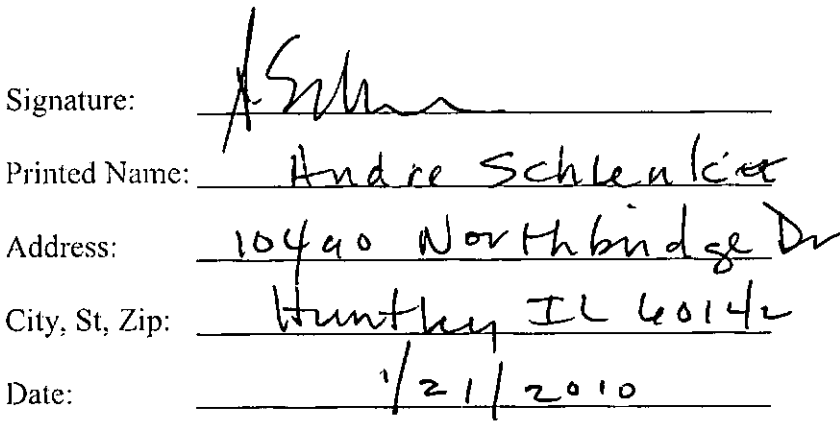 Signature: A. Schl
Printed Name: Andre Schlenker
Address: 10490 Northbridge Dr
City, St, Zip: Huntley IL 60142
Date: 1/21/2010